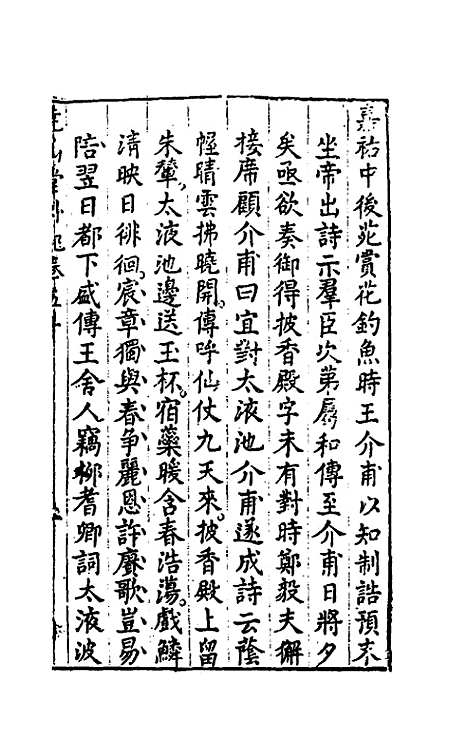 嘉祐中後苑賞花釣魚時王介甫以知制誥預末
坐帝出詩示羣臣次第屬和傳至介甫日將夕
矣亟欲奏御得披香殿字未有對時鄭毅夫獬
接席顧介甫曰宜對太液池介甫遂成詩云蔭
幄晴雲拂曉開傳呼仙仗九天來披香殿上留
朱輦太液池邊送玉杯宿蘂暖含春浩蕩戲鱗
清映日徘徊宸章獨與春爭麗恩許賡歌豈易
陪翌日都下盛傳王舍人竊柳耆卿詞太液波